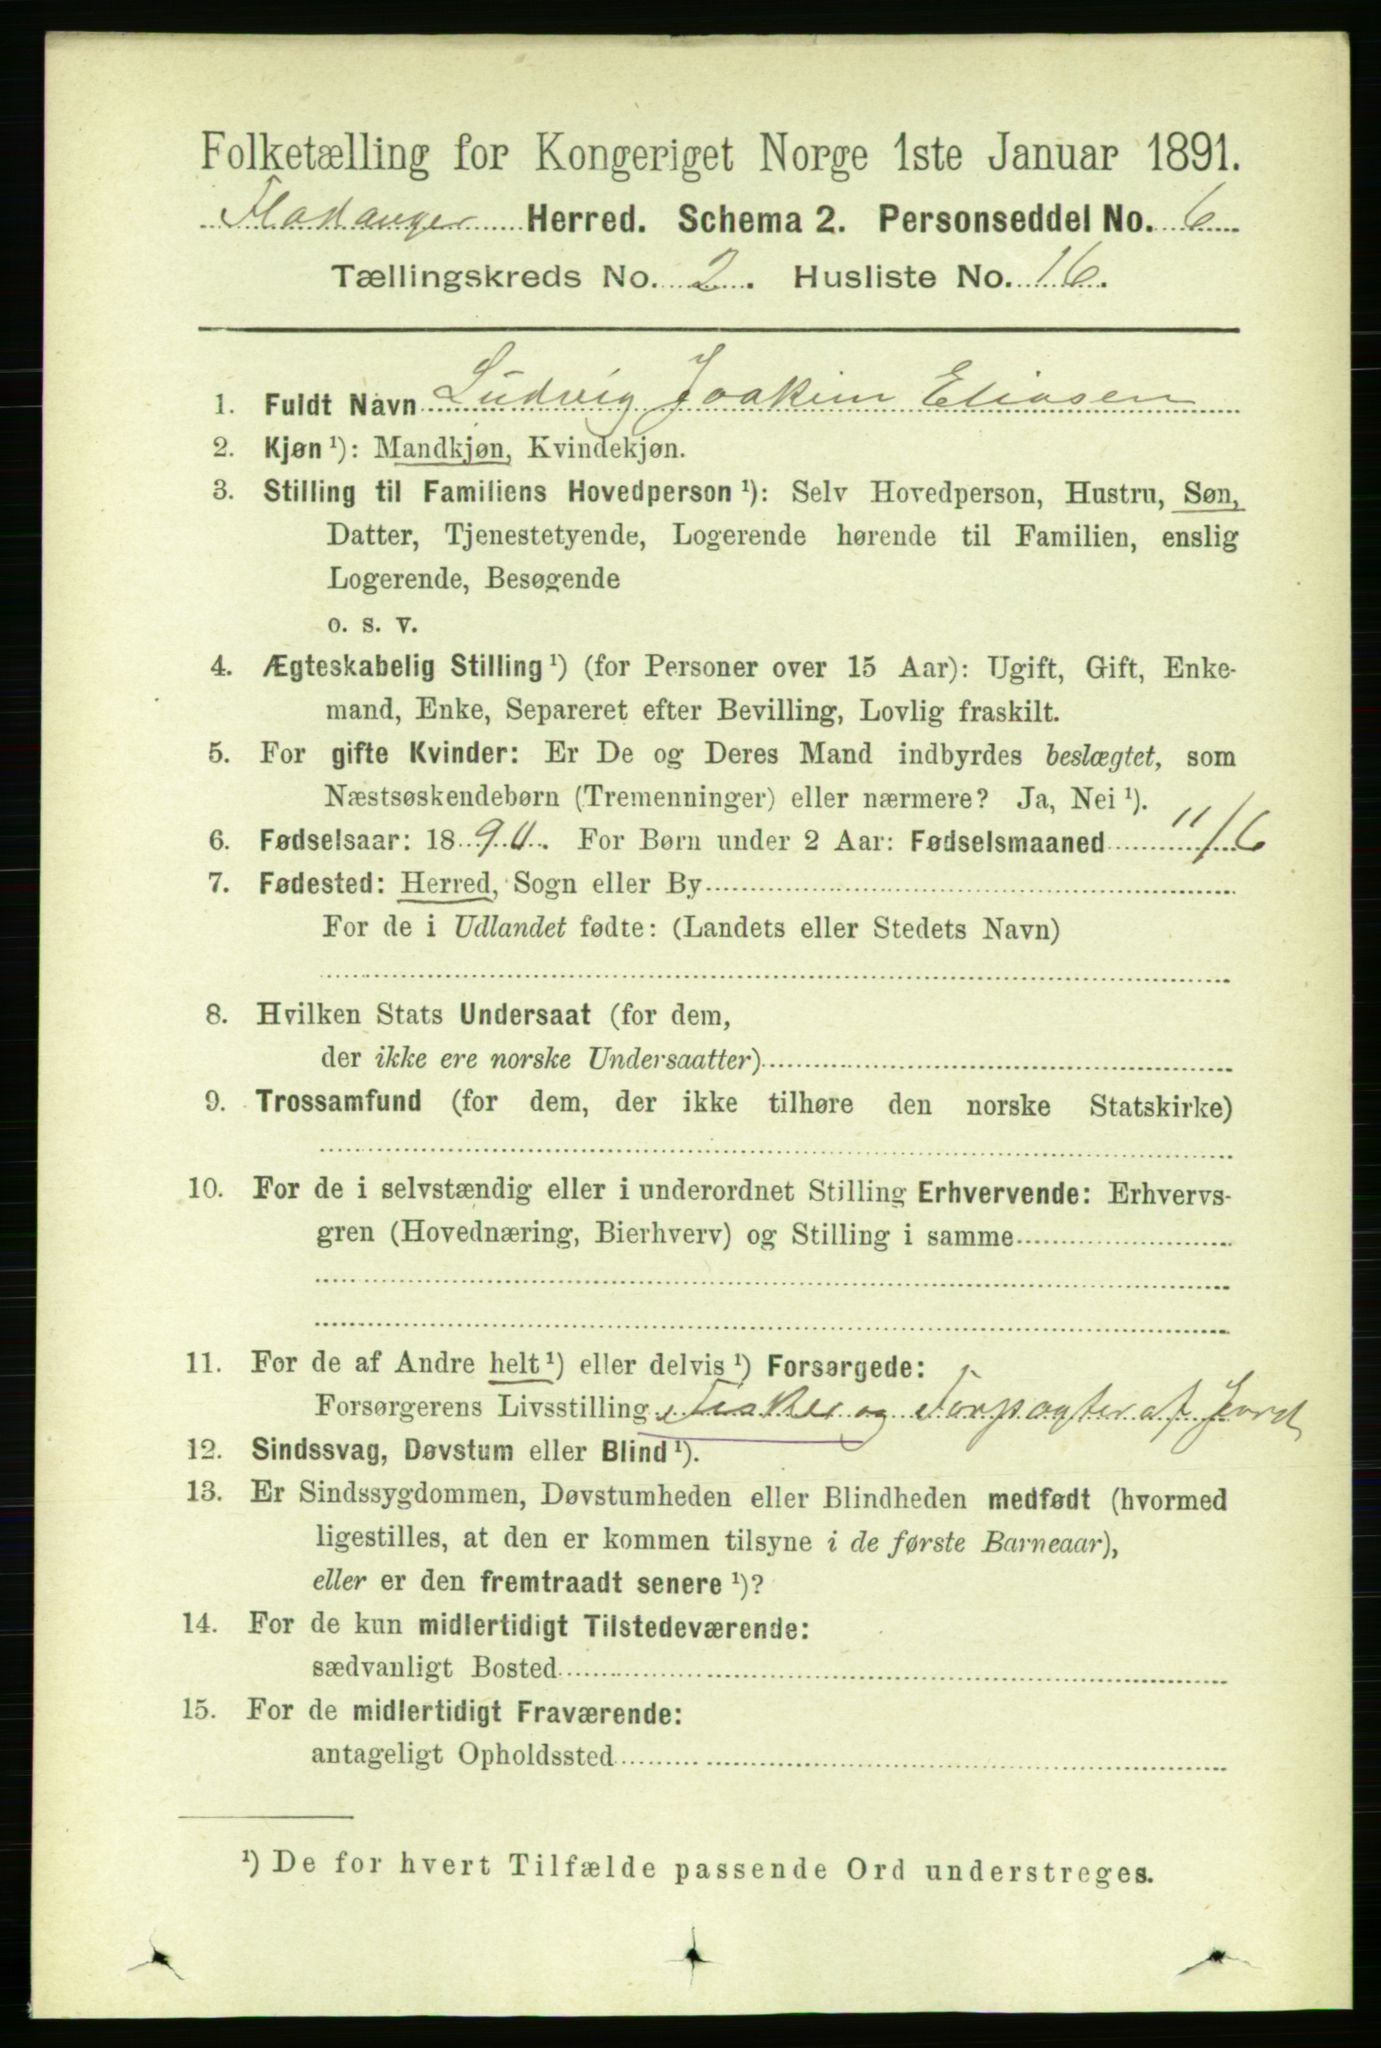 Folketælling for Kongeriget Norge 1ste Januar 1891.
Fladanger Herred. Schema 2. Personseddel No. 6
Tællingskreds No. 2. Husliste No. 16.
1. Fuldt Navn Ludvig Joakim Eliasen
2. Kjøn ¹): Mandkjøn, Kvindekjøn.
3. Stilling til Familiens Hovedperson ¹): Selv Hovedperson, Hustru, Søn,
Datter, Tjenestetyende, Logerende hørende til Familien, enslig
Logerende, Besøgende
o. s. v.
4. Ægteskabelig Stilling ¹) (for Personer over 15 Aar): Ugift, Gift, Enke-
mand, Enke, Separeret efter Bevilling, Lovlig fraskilt.
5. For gifte Kvinder: Er De og Deres Mand indbyrdes beslægtet, som
Næstsøskendebørn (Tremenninger) eller nærmere? Ja, Nei ¹).
6. Fødselsaar: 1890. For Børn under 2 Aar: Fødselsmaaned 11/6
7. Fødested: Herred, Sogn eller By
For de i Udlandet fødte: (Landets eller Stedets Navn)
8. Hvilken Stats Undersaat (for dem,
der ikke ere norske Undersaatter)
9. Trossamfund (for dem, der ikke tilhøre den norske Statskirke)
10. For de i selvstændig eller i underordnet Stilling Erhvervende: Erhvervs-
gren (Hovednæring, Bierhverv) og Stilling i samme
11. For de af Andre helt ¹) eller delvis ¹) Forsørgede:
Forsørgerens Livsstilling Fisker og Forpagter af Jord
12. Sindssvag, Døvstum eller Blind ¹).
13. Er Sindssygdommen, Døvstumheden eller Blindheden medfødt (hvormed
ligestilles, at den er kommen tilsyne i de første Barneaar),
eller er den fremtraadt senere ¹)?
14. For de kun midlertidigt Tilstedeværende:
sædvanligt Bosted
15. For de midlertidigt Fraværende:
antageligt Opholdssted
¹) De for hvert Tilfælde passende Ord understreges.